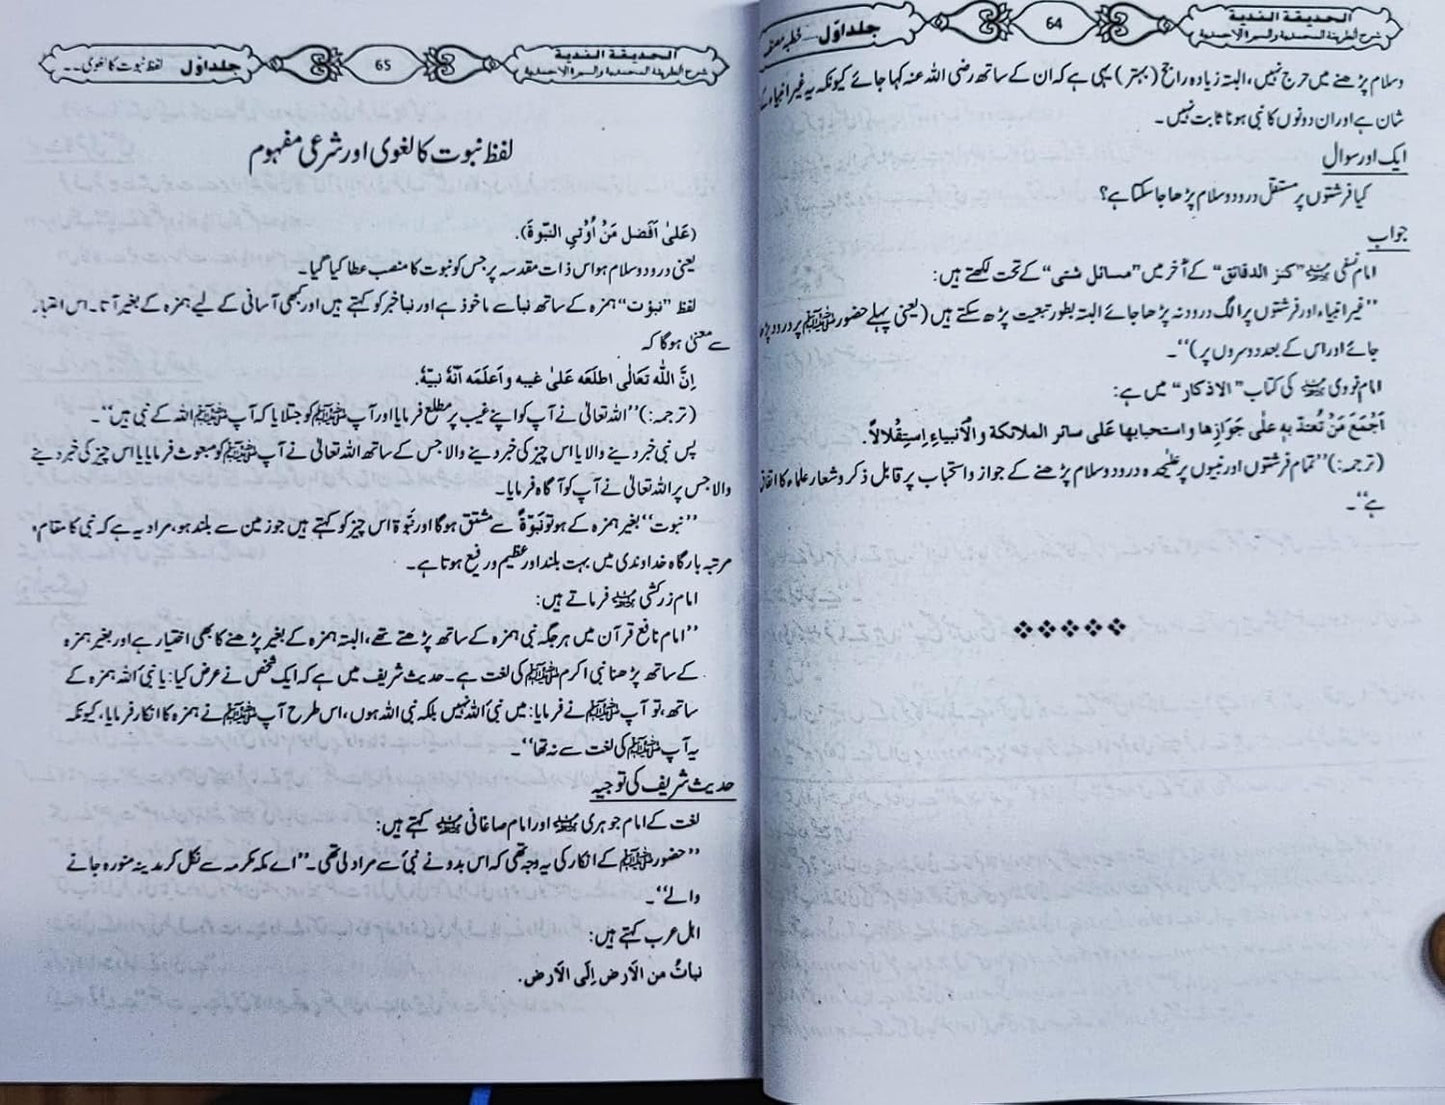 الحدیقة الندیة
شرح الطریقة المحمدیة والسیرة الاحمدیة
64
جلد اوّل خطبہ
وسلام پڑھنے میں حرج نہیں، البتہ زیادہ راجح (بہتر) یہی ہے کہ ان کے ساتھ رضی اللہ عنہ کہا جائے کیونکہ یہ غیر انبیاء
شان ہے اور ان دونوں کا نبی ہونا ثابت نہیں۔
ایک اور سوال
کیا فرشتوں پر مستقل درود و سلام پڑھا جا سکتا ہے؟
جواب
امام نسفی رحمۃ اللہ علیہ "کنز الدقائق" کے آخر میں "مسائل شتی" کے تحت لکھتے ہیں:
"غیر انبیاء اور فرشتوں پر الگ درود نہ پڑھا جائے البتہ بطور تبعیت پڑھ سکتے ہیں (یعنی پہلے حضور ﷺ پر درود پڑھا
جائے اور اس کے بعد دوسروں پر)"۔
امام نووی رحمۃ اللہ علیہ کی کتاب "الاذکار" میں ہے:
اَجْمَعَ مَنْ تُعتدّ بِهٖ علٰی جَوَازِها واستحبابها عَلی سائر الملائکة والْاَنبیاءِ اِستِقْلالاً.
(ترجمہ:) "تمام فرشتوں اور نبیوں پر علیٰحدہ درود و سلام پڑھنے کے جواز و استحباب پر قابل ذکر و شمار علماء کا اتفاق
ہے"۔
الحدیقة الندیة
شرح الطریقة المحمدیة والسیرة الاحمدیة
65
جلد اوّل لفظ نبوت کا لغوی۔۔
لفظ نبوت کا لغوی اور شرعی مفہوم
(عَلیٰ اَفضل مَنْ اُوْتِی النبّوةَ).
یعنی درود و سلام ہو اس ذات مقدسہ پر جس کو نبوت کا منصب عطا کیا گیا۔
لفظ "نبؤت" ہمزہ کے ساتھ نبا سے ماخوذ ہے اور نبا خبر کو کہتے ہیں اور کبھی آسانی کے لیے ہمزہ کے بغیر آتا۔ اس اعتبار
سے معنیٰ ہوگا کہ
اِنَّ اللّٰه تَعَالٰی اطلَعَه عَلیٰ غیبه و اَعلَمَه اَنّهٗ نبیّهٗ.
(ترجمہ:) "اللہ تعالیٰ نے آپ کو اپنے غیب پر مطلع فرمایا اور آپ ﷺ کو جتلایا کہ آپ ﷺ اللہ کے نبی ہیں"۔
پس نبی خبر دینے والا یا اس چیز کی خبر دینے والا جس کے ساتھ اللہ تعالیٰ نے آپ ﷺ کو مبعوث فرمایا یا اس چیز کی خبر دینے
والا جس پر اللہ تعالیٰ نے آپ کو آگاہ فرمایا۔
"نبوت" بغیر ہمزہ کے ہو تو نَبوَةٌ سے مشتق ہوگا اور نَبُوة اس چیز کو کہتے ہیں جو زمین سے بلند ہو، مراد یہ ہے کہ نبی کا مقام،
مرتبہ بارگاہ خداوندی میں بہت بلند اور عظیم و رفیع ہوتا ہے۔
امام زرکشی رحمۃ اللہ علیہ فرماتے ہیں:
"امام نافع قرآن میں ہر جگہ نبی ہمزہ کے ساتھ پڑھتے تھے، البتہ ہمزہ کے بغیر پڑھنے کا بھی اختیار ہے اور بغیر ہمزہ
کے ساتھ پڑھنا نبی اکرم ﷺ کی لغت ہے۔ حدیث شریف میں ہے کہ ایک شخص نے عرض کیا: یا نبئ اللہ ہمزہ کے
ساتھ، تو آپ ﷺ نے فرمایا: میں نبئ اللہ نہیں بلکہ نبی اللہ ہوں، اس طرح آپ ﷺ نے ہمزہ کا انکار فرمایا، کیونکہ
یہ آپ ﷺ کی لغت سے نہ تھا"۔
حدیث شریف کی توجیہ
لغت کے امام جوہری رحمۃ اللہ علیہ اور امام صاغانی رحمۃ اللہ علیہ کہتے ہیں:
"حضور ﷺ کے انکار کی یہ وجہ تھی کہ اس بدو نے نبیٔ سے مراد لی تھی۔ "اے مکہ مکرمہ سے نکل کر مدینہ منورہ جانے
والے"۔
اہل عرب کہتے ہیں:
نباتُ من الاَرض اِلَی الاَرض.